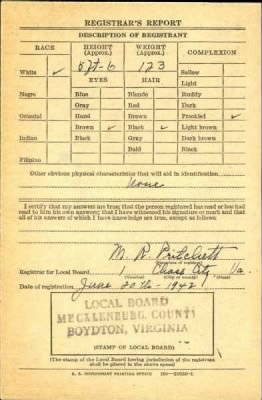 REGISTRAR'S REPORT
DESCRIPTION OF REGISTRANT
RACE HEIGHT (Approx.) WEIGHT (Approx.) COMPLEXION
5 ft-6 123
White ✓ Sallow
EYES HAIR Light
Negro Blue Blonde Ruddy
Gray Red Dark
Oriental Hazel Brown Freckled ✓
Brown ✓ Black ✓ Light brown
Indian Black Gray Dark brown
Bald Black
Filipino
Other obvious physical characteristics that will aid in identification
None
I certify that my answers are true; that the person registered has read or has had read to him his own answers; that I have witnessed his signature or mark and that all of his answers of which I have knowledge are true, except as follows:
M. R. Pritchett
(Signature of registrar)
Registrar for Local Board 1 Chase City Va.
(Number) (City or county) (State)
Date of registration June 30th-1942
LOCAL BOARD
MECKLENBURG COUNTY
BOYDTON, VIRGINIA
(STAMP OF LOCAL BOARD)
(The stamp of the Local Board having jurisdiction of the registrant shall be placed in the above space)
U. S. GOVERNMENT PRINTING OFFICE